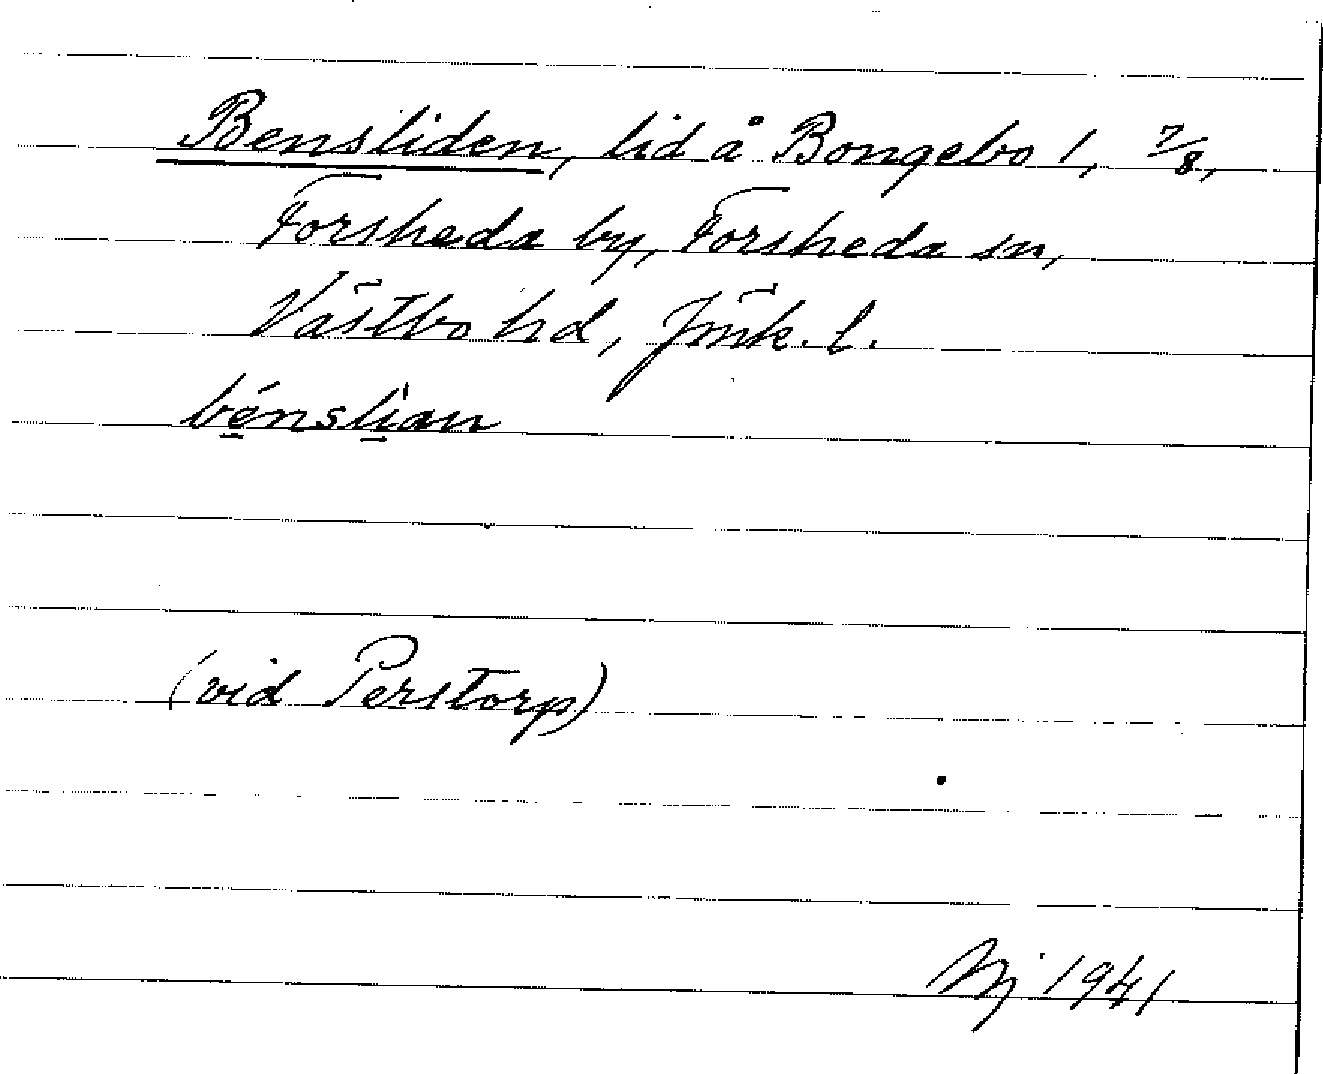 Bensliden, lid å Bongebo 1, 7/8,
Forsheda by, Forsheda sn,
Västbo hd, Jönk. l.
bé̱nslì̱an
(vid Perstorp)
1941